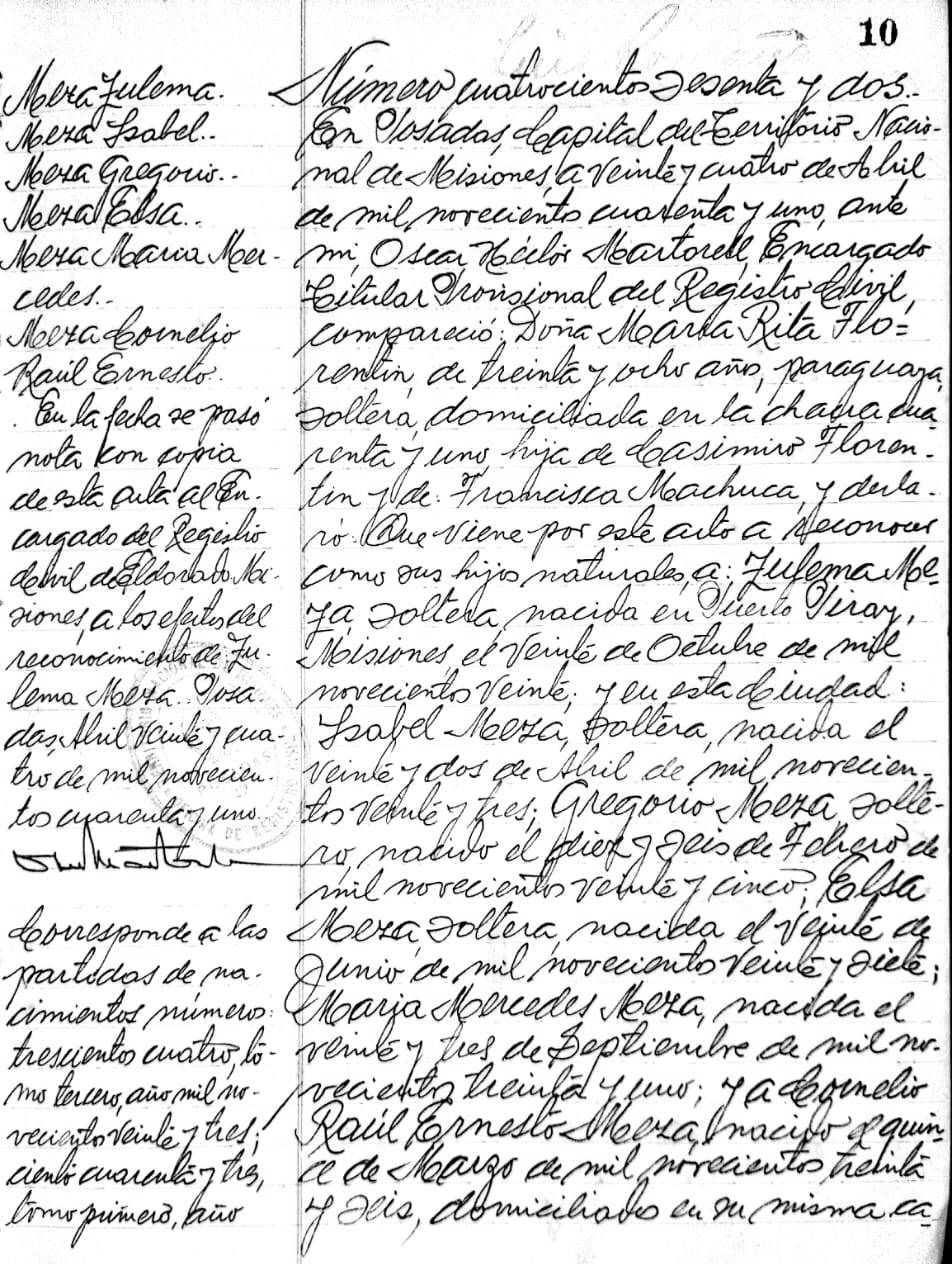 10
Meza Zulema.
Meza Ysabel..
Meza Gregorio..
Meza Elsa..
Meza Maria Mer-
cedes..
Meza Cornelio
Raúl Ernesto.
. En la fecha se pasó
nota con copia
de esta acta al En-
cargado del Registro
Civil de Eldorado Mi-
siones, a los efectos del
reconocimiento de Zu-
lema Meza.. Posa-
das, Abril veinte y cua-
tro de mil novecien-
tos cuarenta y uno.
Corresponde a las
partidas de na-
cimientos números:
trescientos cuatro, to-
mo tercero, año mil no-
vecientos veinte y tres;
ciento cuarenta y tres,
tomo primero, año
Número cuatrocientos sesenta y dos.-
En Posadas, Capital del Territorio Nacio-
nal de Misiones, a veinte y cuatro de Abril
de mil novecientos cuarenta y uno, ante
mi, Oscar Héctor Martorell, Encargado
Titular Provisional del Registro Civil,
compareció: Doña Maria Rita Flo=
rentin, de treinta y ocho años, paraguaya,
soltera, domiciliada en la chacra cua-
renta y uno hija de Casimiro Floren-
tin y de Francisca Machuca, y decla-
ró: Que viene por este acto a reconocer
como sus hijos naturales, a: Zulema Me-
za soltera, nacida en Puerto Piray,
Misiones, el veinte de Octubre de mil
novecientos veinte; y en esta Ciudad:
Ysabel Meza, soltera, nacida el
veinte y dos de Abril de mil novecien-
tos veinte y tres; Gregorio Meza, solte-
ro, nacido el diez y seis de Febrero de
mil novecientos veinte y cinco; Elsa
Meza, soltera, nacida el veinte de
Junio de mil novecientos veinte y siete;
Maria Mercedes Meza, nacida el
veinte y tres de Septiembre de mil no-
vecientos treinta y uno; y a Cornelio
Raúl Ernesto Meza, nacido el quin-
ce de Marzo de mil novecientos treinta
y seis, domiciliados en su misma ca-